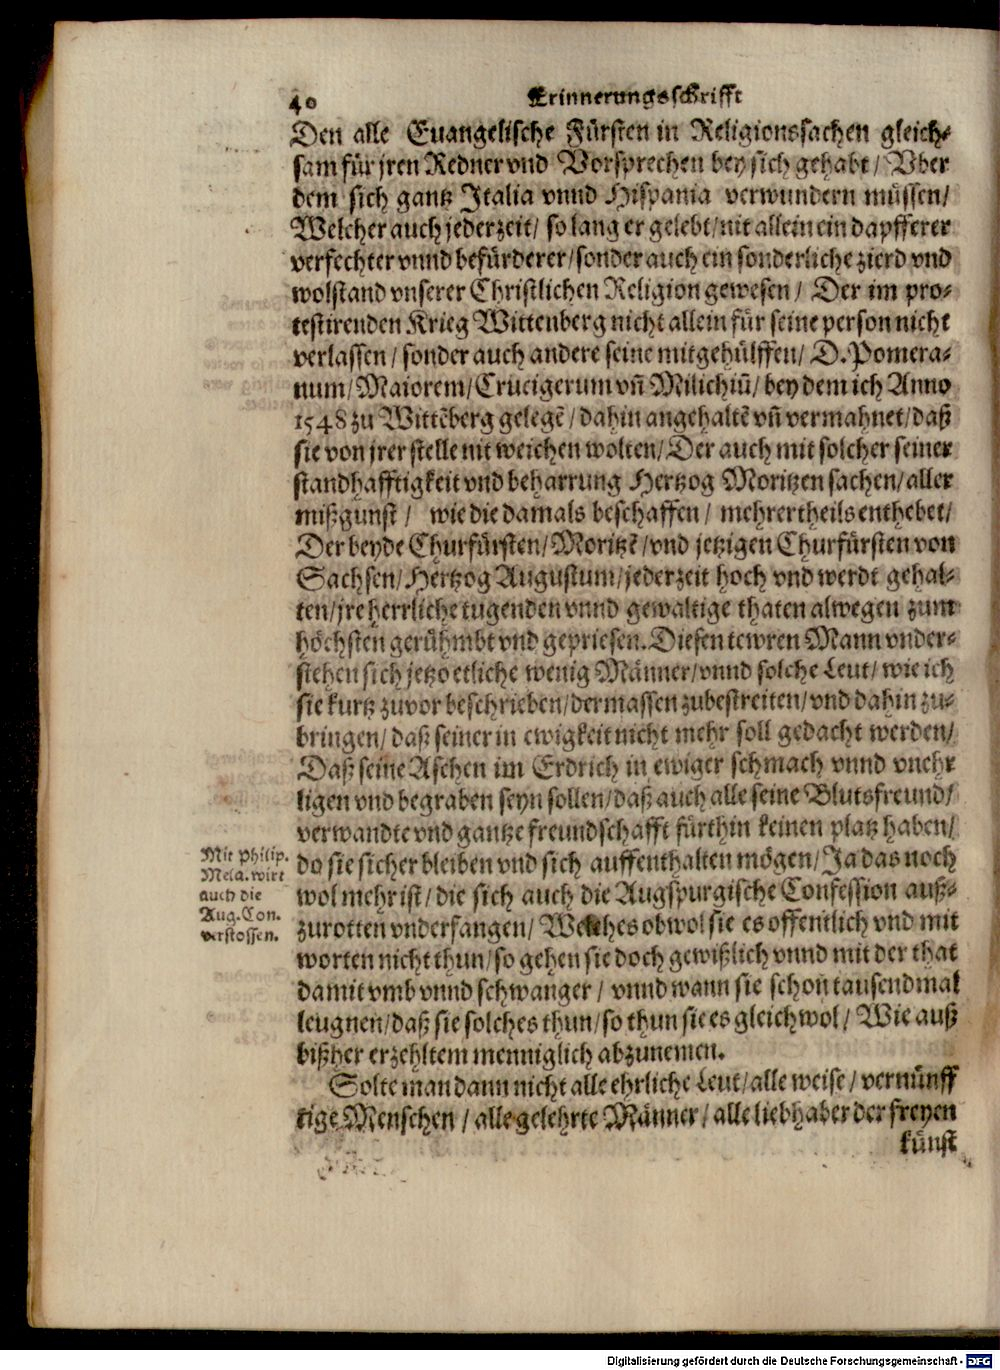 40 Erinnerungsschrifft
Den alle Euangelische Fürsten in Religionssachen gleich-
sam für jren Redner vnd Vorsprechen bey sich gehabt / Vber
dem sich gantz Italia vnnd Hispania verwundern müssen /
Welcher auch jederzeit / so lang er gelebt / nit allein ein dapfferer
verfechter vnnd befürderer / sonder auch ein sonderliche zierd vnd
wolstand vnserer Christlichen Religion gewesen / Der im pro-
testirenden Krieg Wittenberg nicht allein für seine person nicht
verlassen / sonder auch andere seine mitgehülffen / D. Pomera-
num / Maiorem / Crucigerum vñ Milichiũ / bey dem ich Anno
1548 zu Wittẽberg gelegẽ / dahin angehaltẽ vñ vermahnet / daß
sie von jrer stelle nit weichen wolten / Der auch mit solcher seiner
standhafftigkeit vnd beharrung Hertzog Moritzen sachen / aller
mißgunst / wie die damals beschaffen / mehrertheils enthebet /
Der beyde Churfürsten / Moritzẽ / vnd jetzigen Churfürsten von
Sachsen / Hertzog Augustum / jederzeit hoch vnd werdt gehal-
ten / jre herrliche tugenden vnnd gewaltige thaten alwegen zum
höchsten gerühmbt vnd gepriesen. Diesen tewren Mann vnder-
stehen sich jetzo etliche wenig Männer / vnnd solche Leut / wie ich
sie kurtz zuvor beschrieben / dermassen zubestreiten / vnd dahin zu-
bringen / daß seiner in ewigkeit nicht mehr soll gedacht werden /
Daß seine Aschen im Erdrich in ewiger schmach vnnd vnehr
ligen vnd begraben seyn sollen / daß auch alle seine Blutsfreund /
verwandte vnd gantze freundschafft fürthin keinen platz haben /
do sie sicher bleiben vnd sich auffenthalten mögen / Ja das noch
wol mehr ist / die sich auch die Augspurgische Confession auß-
zurotten vnderfangen / Welches obwol sie es offentlich vnd mit
worten nicht thun / so gehen sie doch gewißlich vnnd mit der that
damit vmb vnnd schwanger / vnnd wann sie schon tausendmal
leugnen / daß sie solches thun / so thun sie es gleichwol / Wie auß
bißher erzehltem menniglich abzunemen.
Solte man dann nicht alle ehrliche Leut / alle weise / vernünff
tige Menschen / alle gelehrte Männer / alle liebhaber der freyen
künst
Mit Philip.
Mela. wirt
auch die
Aug. Con.
verstossen.
Digitalisierung gefördert durch die Deutsche Forschungsgemeinschaft - DFG